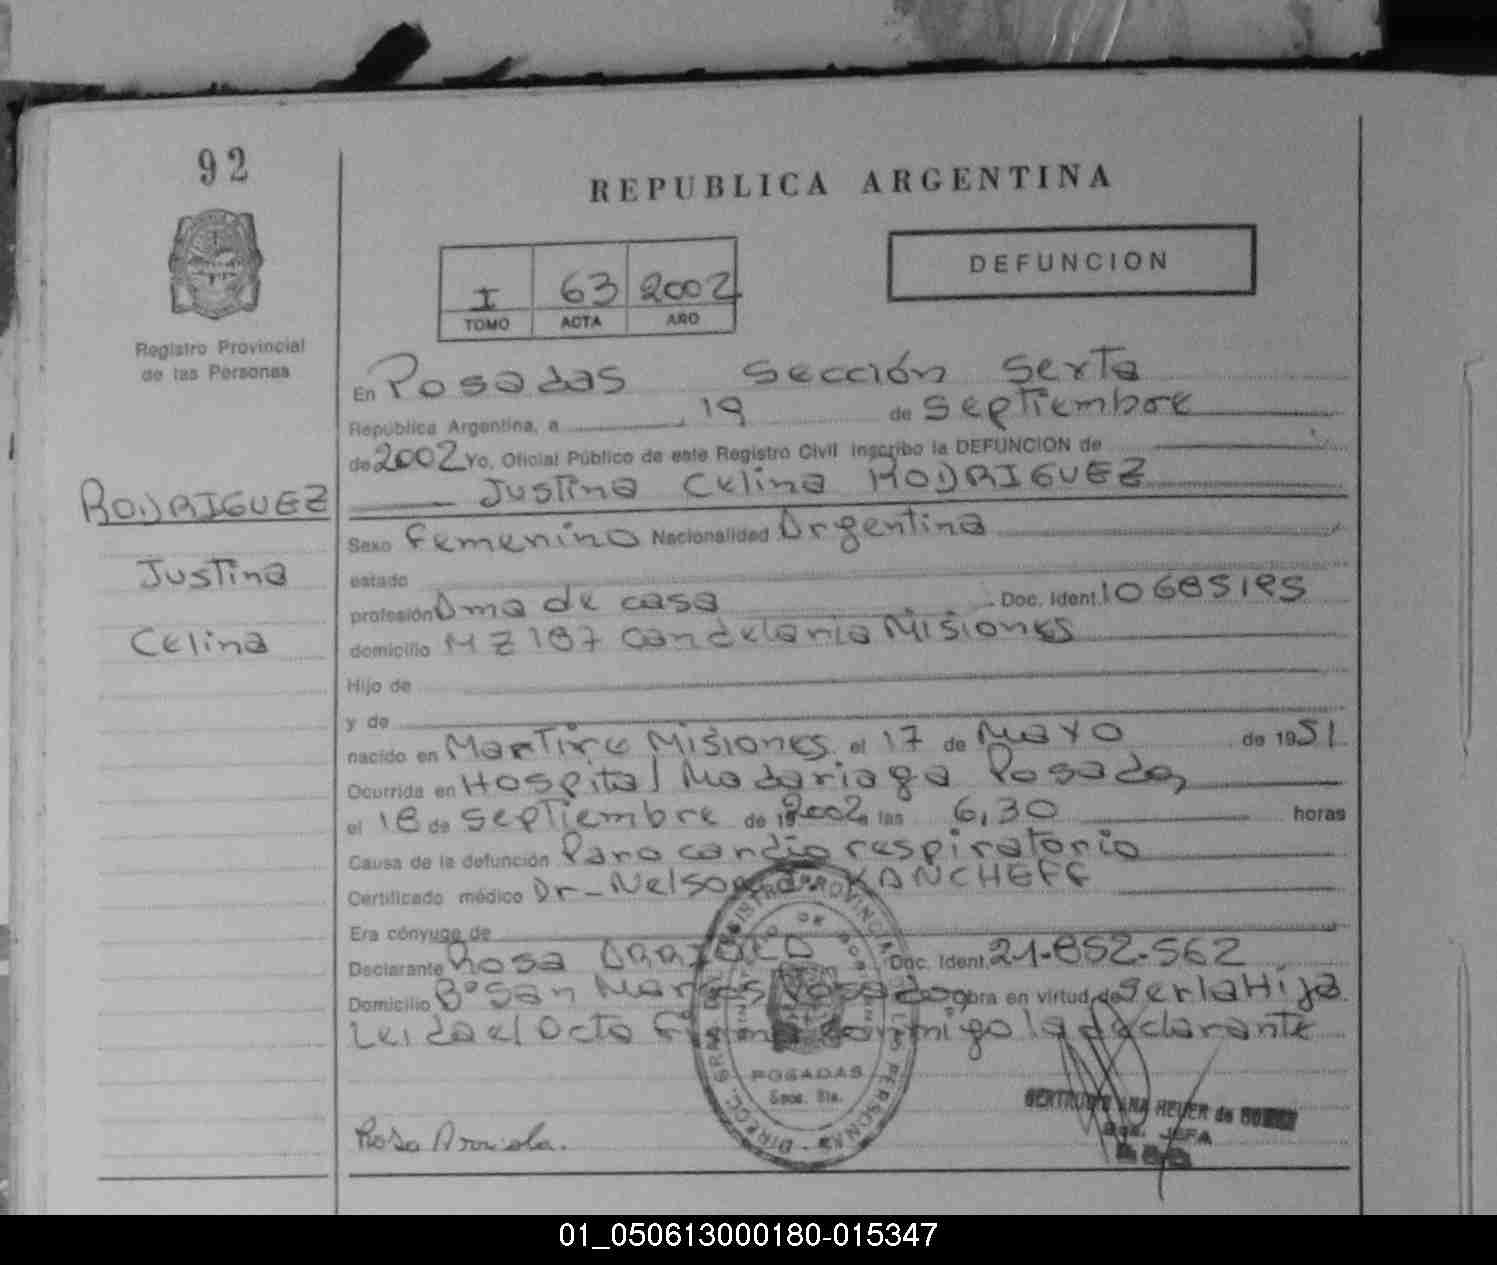 92
REPUBLICA ARGENTINA
DEFUNCION
I 63 2002
TOMO ACTA AÑO
Registro Provincial
de las Personas
RODRIGUEZ
Justina
Celina
En Posadas Sección Sexta
República Argentina, a 19 de Septiembre
de 2002 Yo, Oficial Público de este Registro Civil inscribo la DEFUNCION de
Justina Celina RODRIGUEZ
Sexo Femenino Nacionalidad Argentina
estado
profesión Ama de casa Doc. Ident.
domicilio MZ 187 Candelaria Misiones
Hijo de
y de
nacido en Martires Misiones el 17 de Mayo de 1951
Ocurrida en Hospital Madariaga Posadas
el 18 de Septiembre de 2002 a las 6,30 horas
Causa de la defunción Paro cardio respiratorio
Certificado médico Dr- Nelson YANCHEFF
Era cónyuge de
Declarante Rosa ARRIOLA Doc. Ident. 21.852.562
Domicilio B° San Marcos Posadas obra en virtud de ser la Hija
Leida el Acta Firma conmigo la declarante
POSADAS
Secc. 6ta.
Rosa Arriola.
GERTRUDIS ANA HEUER de
JEFA
01_050613000180-015347